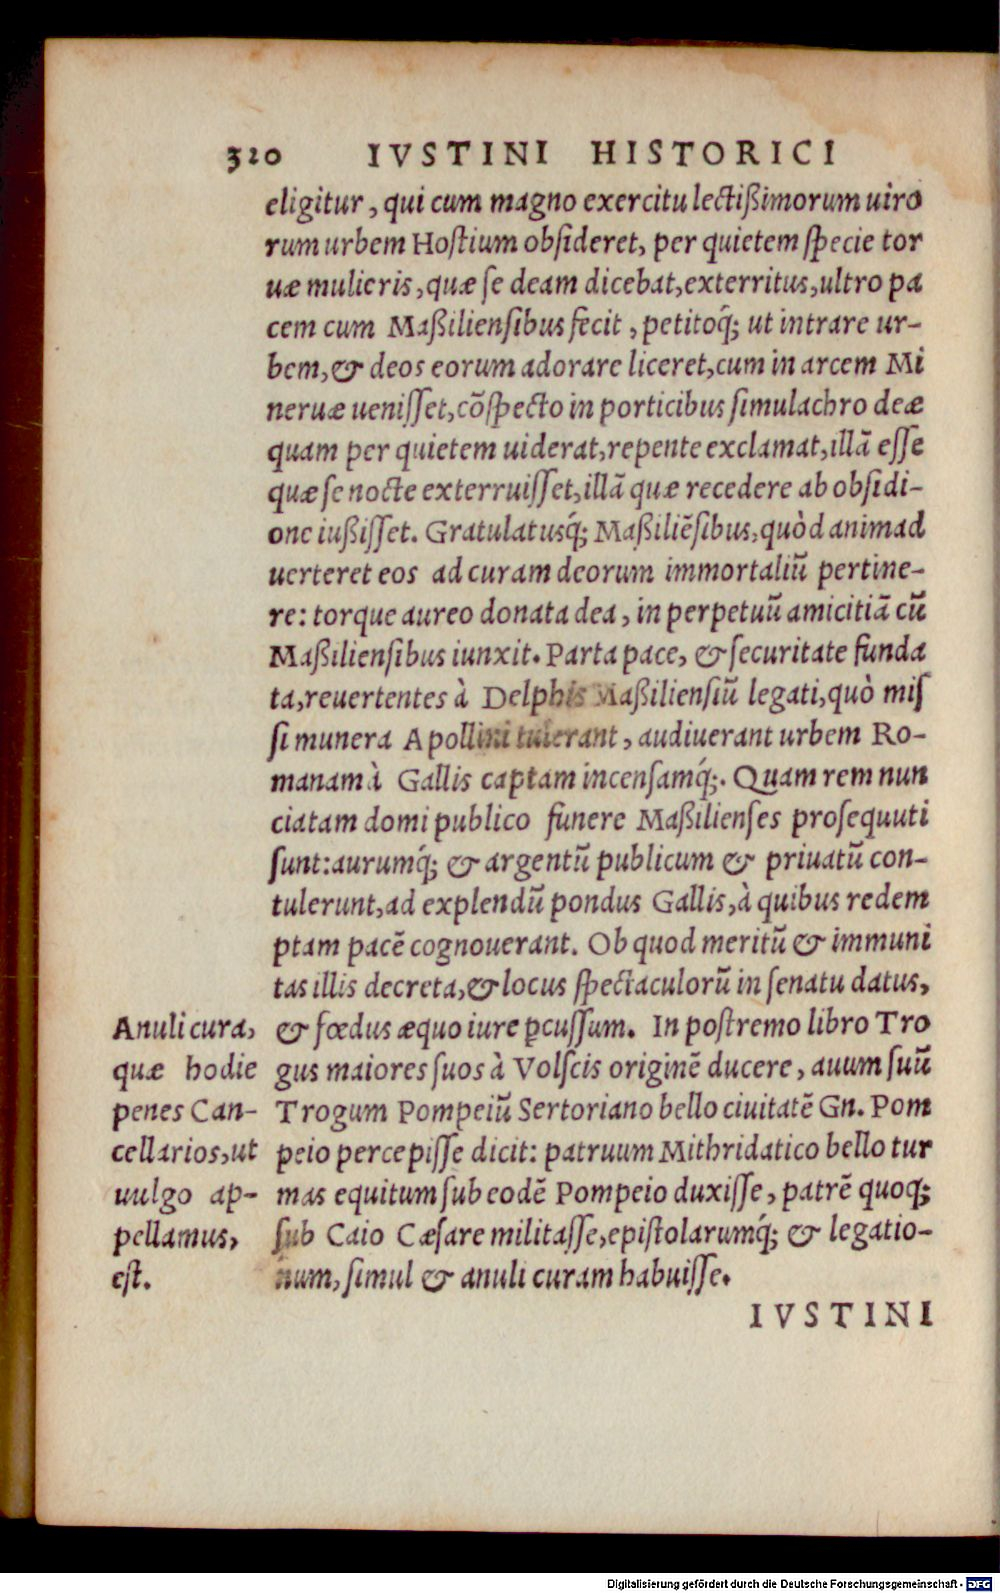 320 IVSTINI HISTORICI
eligitur, qui cum magno exercitu lectißimorum uiro
rum urbem Hoſtium obſideret, per quietem ſpecie tor
uæ mulieris, quæ ſe deam dicebat, exterritus, ultro pa
cem cum Maßilienſibus fecit, petitoq́; ut intrare ur-
bem, & deos eorum adorare liceret, cum in arcem Mi
neruæ ueniſſet, cõſpecto in porticibus ſimulachro deæ
quam per quietem uiderat, repente exclamat, illã eſſe
quæ ſe nocte exterruiſſet, illã quæ recedere ab obſidi-
one iußiſſet. Gratulatusq́; Maßiliẽſibus, quòd animad
uerteret eos ad curam deorum immortaliũ pertine-
re: torque aureo donata dea, in perpetuũ amicitiã cũ
Maßilienſibus iunxit. Parta pace, & ſecuritate funda
ta, reuertentes à Delphis Maßilienſiũ legati, quò miſ
ſi munera Apollini tulerant, audiuerant urbem Ro-
manam à Gallis captam incenſamq́;. Quam rem nun
ciatam domi publico funere Maßilienſes proſequuti
ſunt: aurumq́; & argentũ publicum & priuatũ con-
tulerunt, ad explendũ pondus Gallis, à quibus redem
ptam pacẽ cognouerant. Ob quod meritũ & immuni
tas illis decreta, & locus ſpectaculorũ in ſenatu datus,
& fœdus æquo iure ꝑcuſſum. In poſtremo libro Tro
gus maiores ſuos à Volſcis originẽ ducere, auum ſuũ
Trogum Pompeiũ Sertoriano bello ciuitatẽ Gn. Pom
peio percepiſſe dicit: patruum Mithridatico bello tur
mas equitum ſub eodẽ Pompeio duxiſſe, patrẽ quoq;
ſub Caio Cæſare militaſſe, epiſtolarumq́; & legatio-
num, ſimul & anuli curam habuiſſe.
Anuli cura,
quæ hodie
penes Can-
cellarios, ut
uulgo ap-
pellamus,
eſt.
IVSTINI
Digitalisierung gefördert durch die Deutsche Forschungsgemeinschaft - DFG